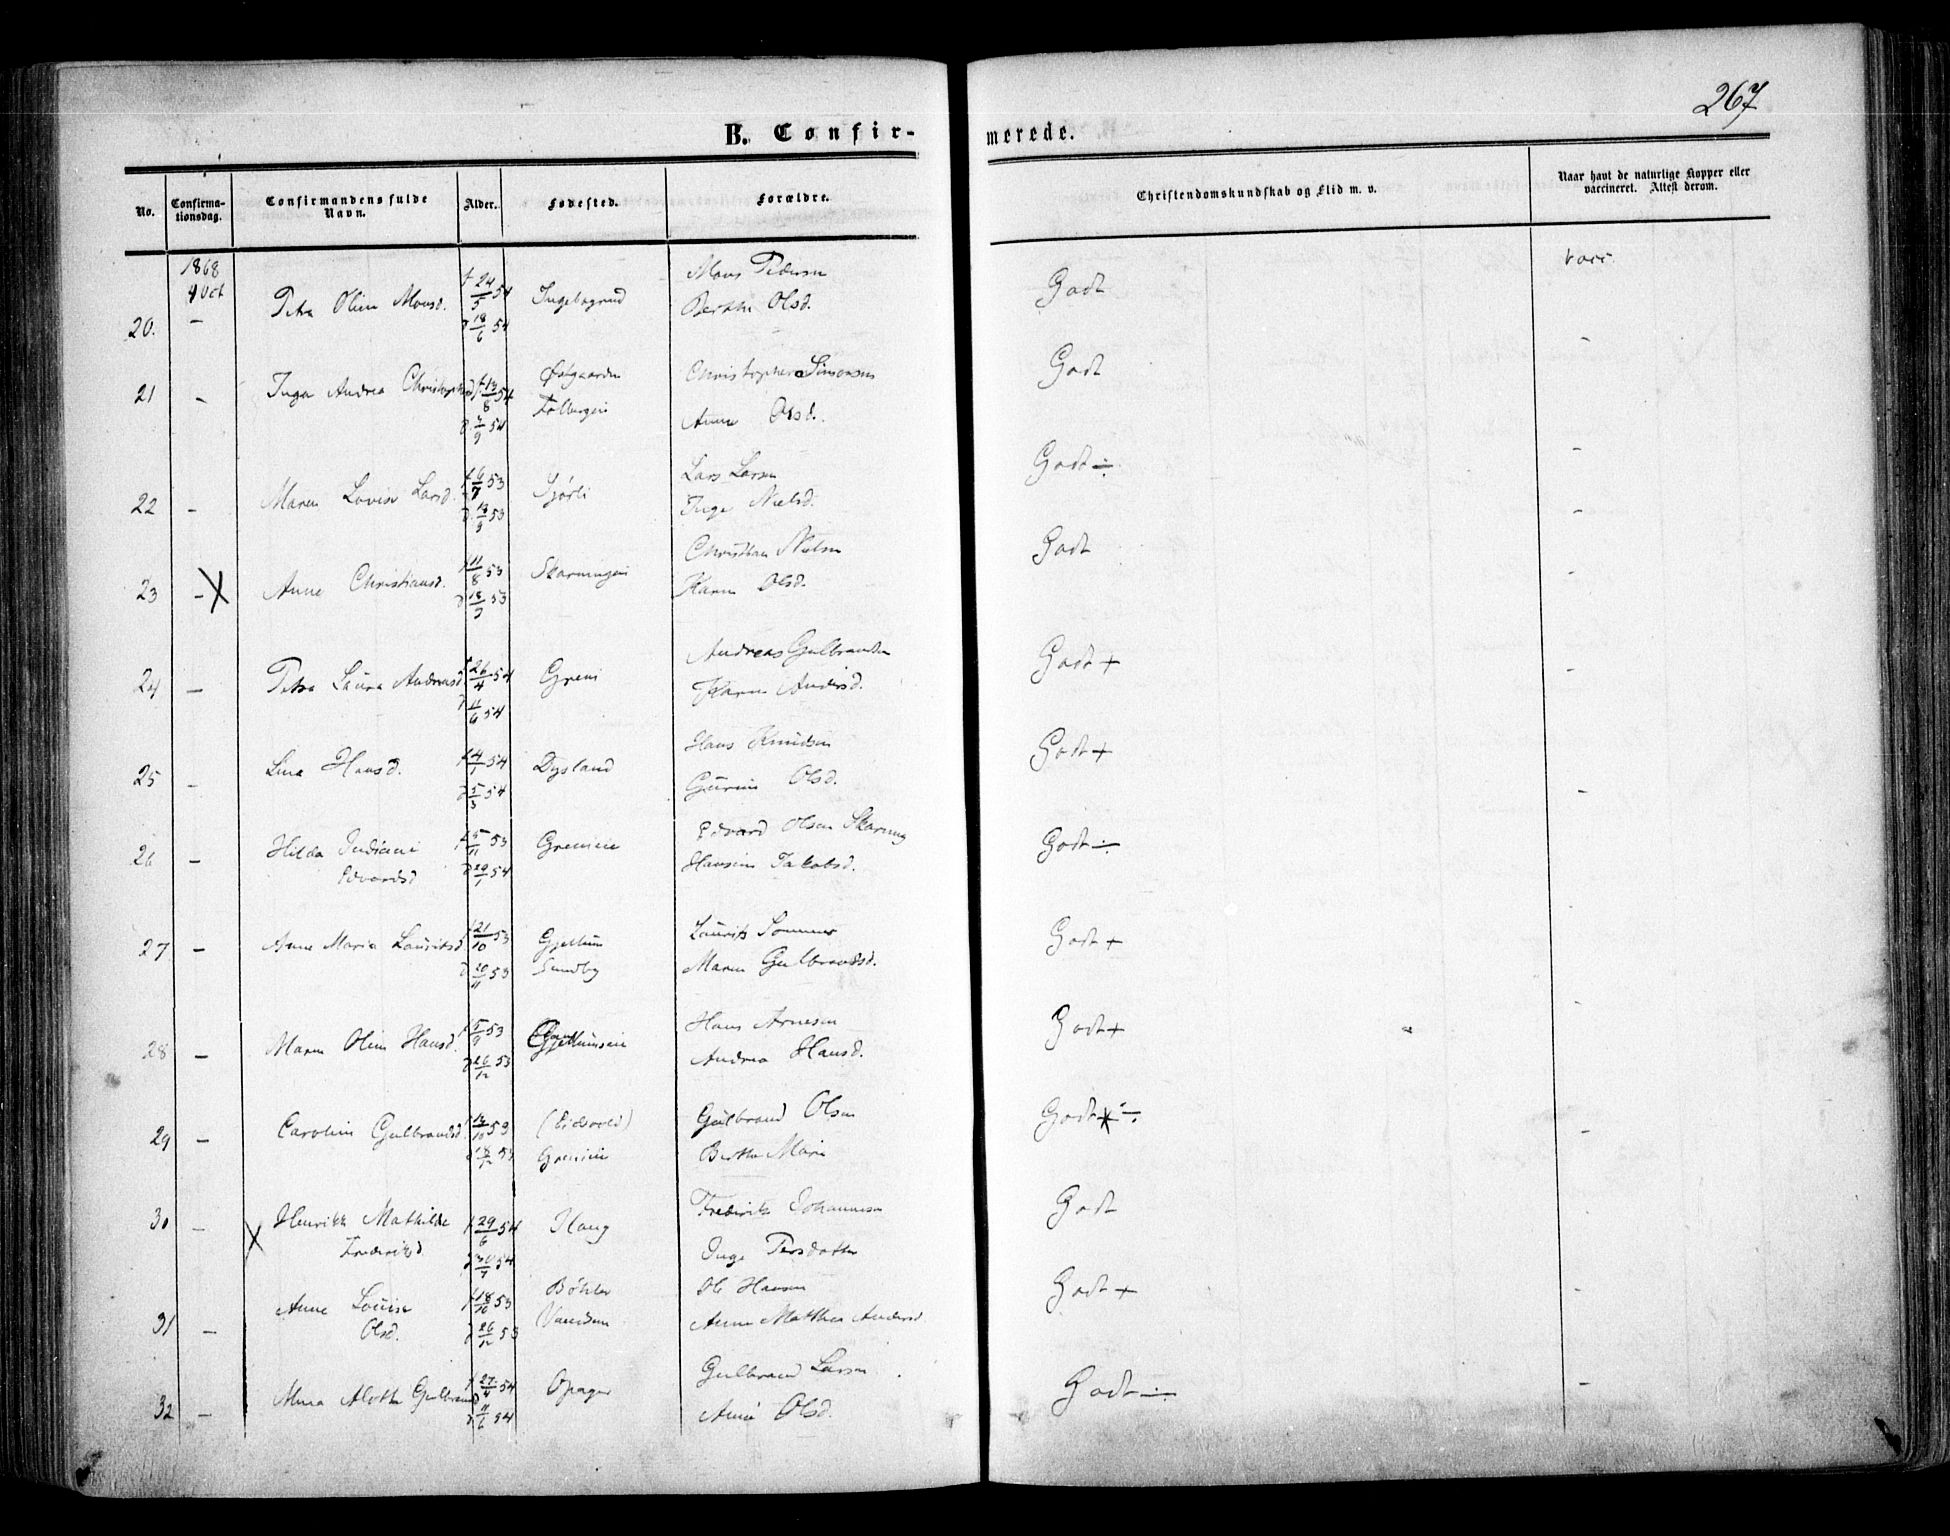 267
B. Confir-
merede.
No.
Confirma-
tionsdag.
Confirmandens fulde
Navn.
Alder.
Fødested.
Forældre.
Christendomskundskab og Flid m. v.
Naar havt de naturlige Kopper eller
vaccineret. Attest derom.
1868
4 Oct
20. - Petra Oline Monsd. f 24/5 54 Ingebogrud Mons Pedersen Godt vacc.
d 18/6 54 Berthe Olsd.
21 - Inga Andrea Christophersd f 13/8 54 Østgaarden Christopher Simonsen Godt -
d. 3/9 54 Folbergeie Anne Olsd.
22 - Maren Lovise Larsd. f 6/7 53 Gjørli Lars Larsen Godt ÷ -
d. 18/9 53 Inge Nielsd.
23 - X Anne Christiansd. f 11/8 53 Skarnungeie Christian Nielsen Godt -
d 18/9 53 Karen Olsd.
24 - Petra Laura Andreasd. f 26/4 54 Greni Andreas Gulbrandsen Godt + -
d 11/6 54 Karen Andersd.
25 - Lina Hansd. f 4/1 54 Dysland Hans Knudsen Godt + -
d 5/3 54 Gurine Olsd.
26 - Hilda Indiane f 5/11 53 Grenieie Edvard Olsen Skarnug Godt ÷
Edvardsd d 29/1 54 Hansine Jakobsd.
27 - Anne Maria Lauritsd. f 21/10 53 Gjellum Laurits Sommer Godt + -
d 20/11 53 Sundby Maren Gulbrandsd.
28 - Maren Oline Hansd. f 5/9 53 Gjellumseie Hans Arnesen Godt + -
d 26/12 53 Andrea Hansd.
29 - Caroline Gulbrandsd. f 13/10 53 (Eidsvold) Gulbrand Olsen Godt ÷ -
d 18/12 53 Grenieie Berthe Marie
30 - X Henrikke Mathilde f 29/6 54 Haug Frederik Johannesen Godt
Frederiksd d 30/7 54 Inge Persdatter
31 - Anne Louise f 18/10 53 Bøhler Ole Hansen Godt + -
Olsd. d 26/12 53 Anne Mathea Andersd.
32 - Alotte Gulbrandsd f 27/4 54 Opager Gulbrand Larsen Godt ÷ -
d 11/6 54 Anne Olsd.